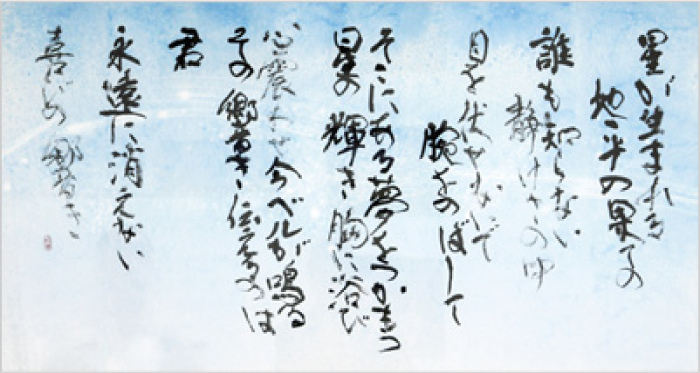 星が生まれる
地平の果ての
誰も知らない
静けさの中
目を伏せないで
腕をのばして
そこにある夢をつかもう
星の輝き胸に浴び
心震わせ今ベルが鳴る
その響き伝えるのは
君
永遠に消えない
喜びの響きを